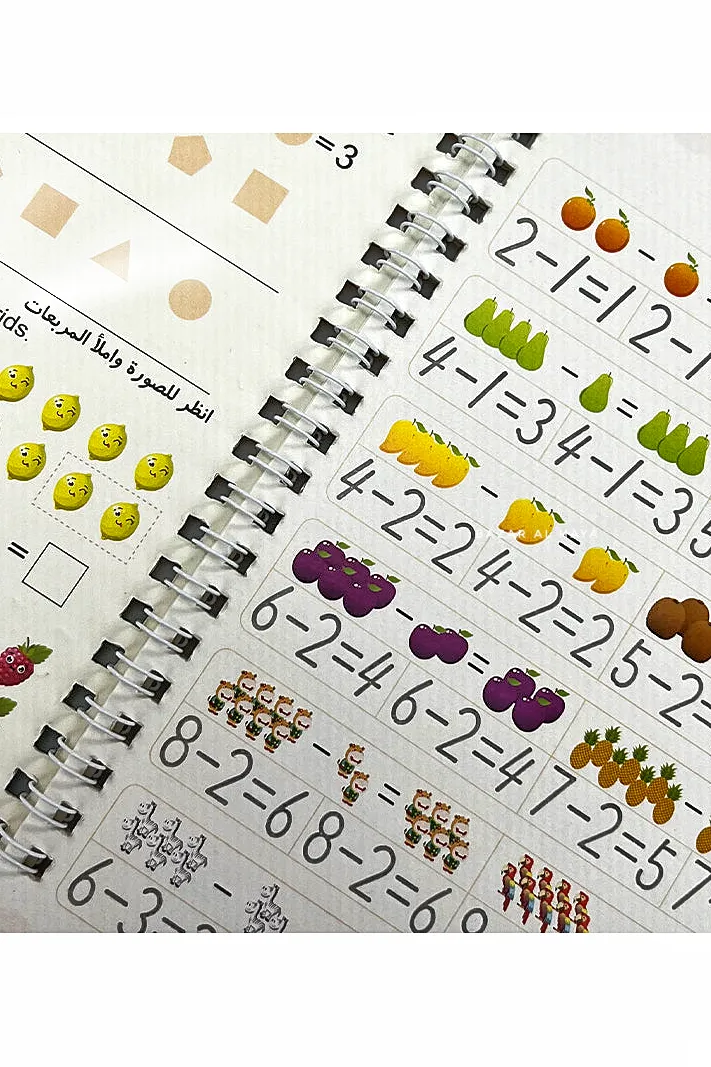 =3
انظر للصورة واملأ المربعات
ids.
=
-
2-1=1 2-1
- =
4-1=3 4-1=3 5
- =
4-2=2 4-2=2 5-2=
- =
6-2=4 6-2=4 7-2=5 7
- =
8-2=6 8-2=6
-
6-3=